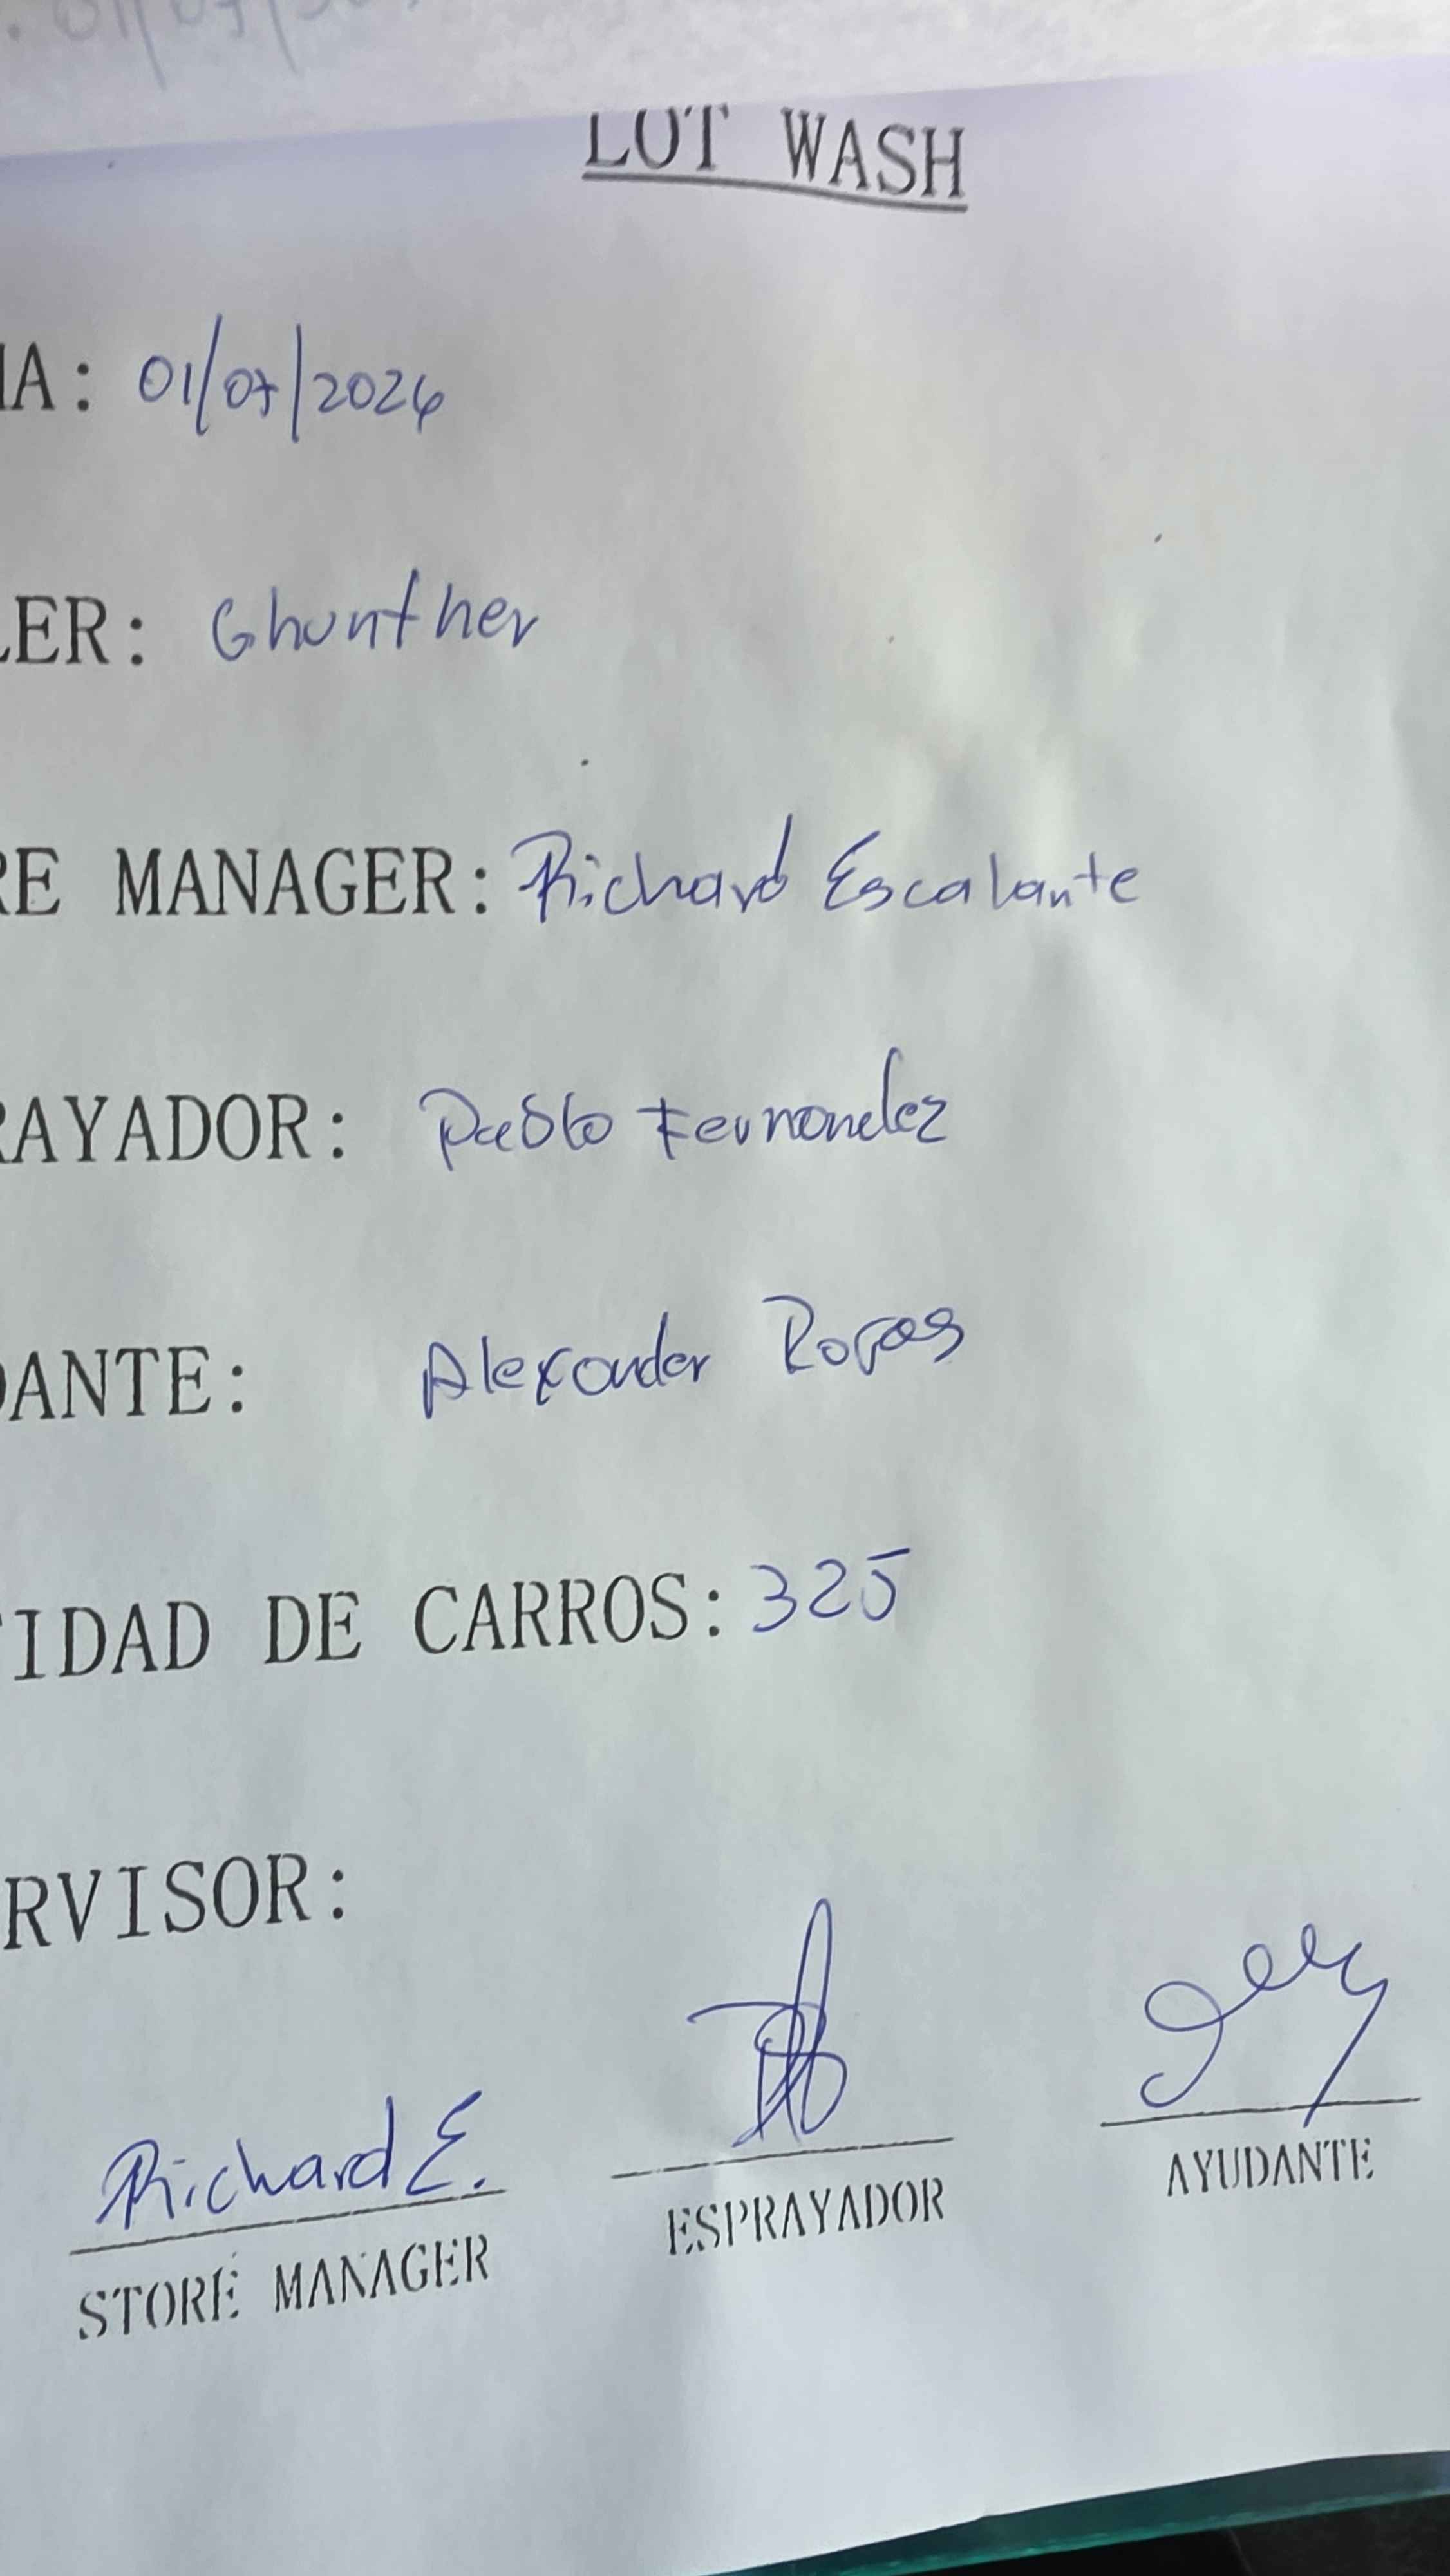 LOT WASH
HA: 01/07/2026
LER: Ghunther
RE MANAGER: Richard Escalante
RAYADOR: Pablo Fernandez
DANTE: Alexander Rojas
TIDAD DE CARROS: 325
RVISOR:
Richard E.
STORE MANAGER
ESPRAYADOR
AYUDANTE